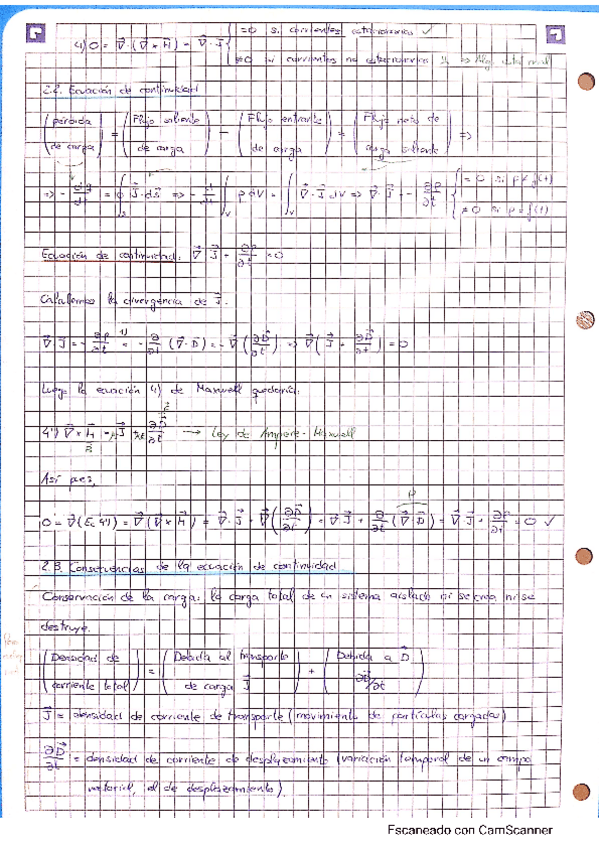 4) 0 = ∇·(∇×H) = ∇·J { =0 si corrientes estacionarias ✓
≠0 si corrientes no estacionarias
2.2. Ecuación de continuidad
(pérdida de carga) = (Flujo saliente de carga) - (Flujo entrante de carga) = (Flujo neto de carga saliente) =>
=> - dq/dt = ∮s J·ds => - d/dt ∫v ρ dV = ∫v ∇·J dV => ∇·J = - ∂ρ/∂t { = 0 si ρ≠f(t)
≠0 si ρ=f(t)
Ecuación de continuidad: ∇·J + ∂ρ/∂t = 0
Calculemos la divergencia de J.
∇·J = - ∂ρ/∂t = - ∂/∂t (∇·D) = - ∇(∂D/∂t) => ∇(J + ∂D/∂t) = 0
Luego la ecuación 4) de Maxwell quedaría:
4') ∇×H = J + ∂D/∂t → Ley de Ampere-Maxwell
Así pues,
0 = ∇(Ec 4') = ∇(∇×H) = ∇·J + ∇(∂D/∂t) = ∇·J + ∂/∂t (∇·D) = ∇·J + ∂ρ/∂t = 0 ✓
2.3. Consecuencias de la ecuación de continuidad
Conservación de la carga: la carga total de un sistema aislado ni se crea ni se
destruye.
(Densidad de corriente total) = (Debida al transporte de carga J) + (Debida a D ∂D/∂t)
J = densidad de corriente de transporte (movimiento de partículas cargadas)
∂D/∂t = densidad de corriente de desplazamiento (variación temporal de un campo
vectorial, el de desplazamiento).
Escaneado con CamScanner